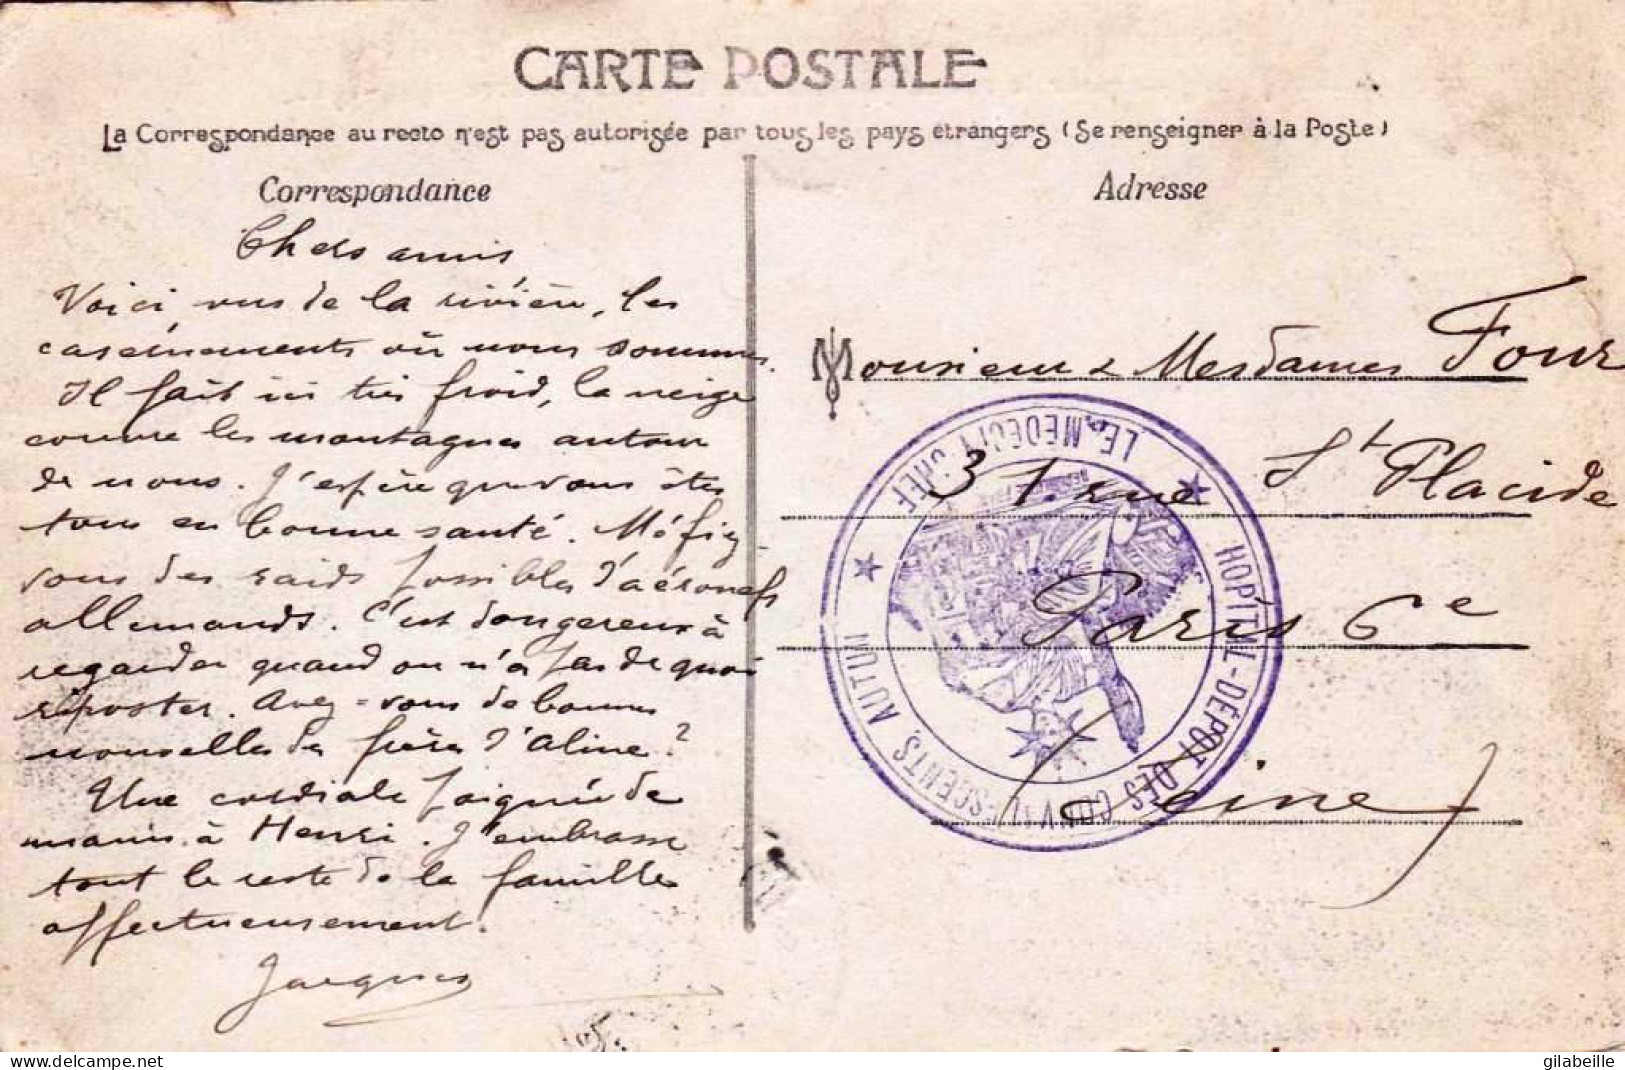 CARTE POSTALE
La Correspondance au recto n'est pas autorisée par tous les pays étrangers (Se renseigner à la Poste)
Correspondance
Chers amis
Voici, vus de la rivière, les
casernements où nous sommes.
Il fait ici très froid, la neige
couvre les montagnes autour
de nous. J'espère que vous êtes
tous en bonne santé. Méfiez-
vous des raids possibles d'aéronefs
allemands. C'est dangereux à
regarder quand on n'a pas de quoi
riposter. Avez-vous de bonnes
nouvelles du frère d'Aline?
Une cordiale poignée de
mains à Henri. J'embrasse
tout le reste de la famille
affectueusement.
Jacques
Adresse
Monsieur & Mesdames Four
31 rue St Placide
Paris 6e
Seine
HOPITAL-DÉPOT DES CONVALESCENTS, AUTUN
LE MÉDECIN CHEF
gilabeille